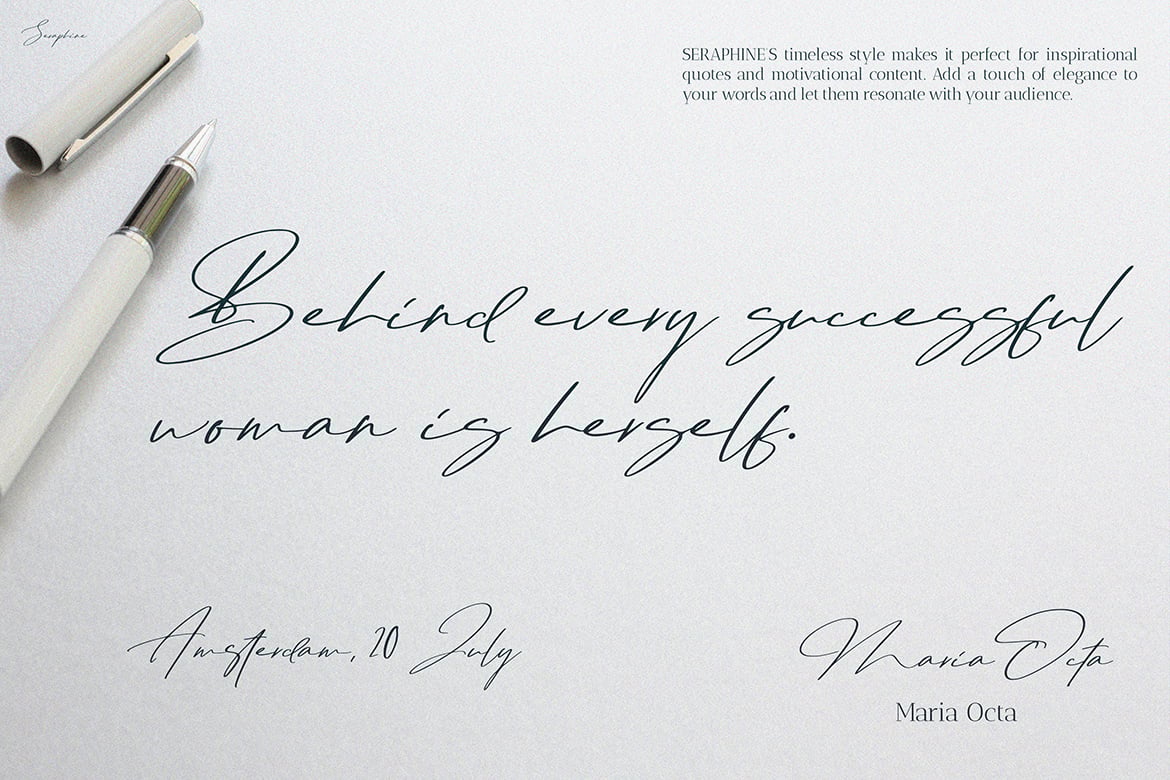 Seraphine
SERAPHINE'S timeless style makes it perfect for inspirational
quotes and motivational content. Add a touch of elegance to
your words and let them resonate with your audience.
Behind every successful
woman is herself.
Amsterdam, 20 July
Maria Octa
Maria Octa